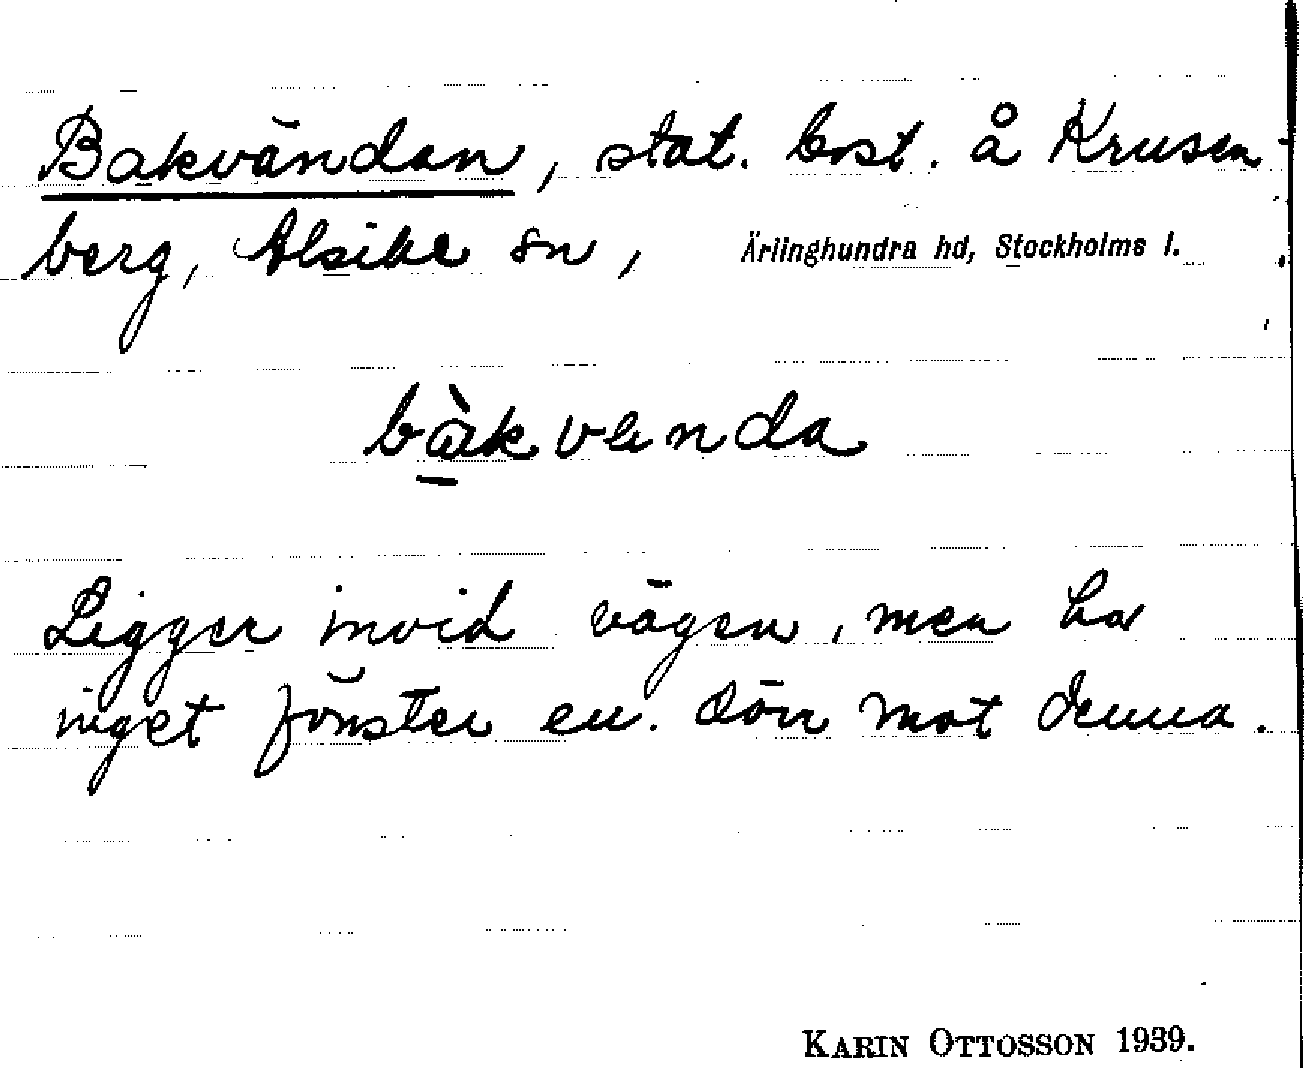 Bakvändan, stat. bost. å Krusen-
berg, Alsike sn, Ärlinghundra hd, Stockholms l.
bàkvenda
Ligger invid vägen, men har
inget fönster el. dörr mot denna.
KARIN OTTOSSON 1939.